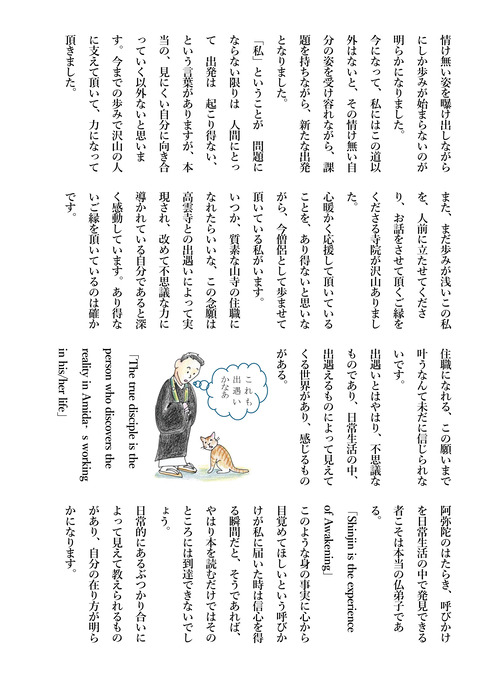 情け無い姿を曝け出しながら
にしか歩みが始まらないのが
明らかになりました。
今になって、私にはこの道以
外はないと、その情け無い自
分の姿を受け容れながら、課
題を持ちながら、新たな出発
となりました。
「私」ということが　問題に
ならない限りは　人間にとっ
て　出発は　起こり得ない、
という言葉がありますが、本
当の、見にくい自分に向き合
っていく以外ないと思いま
す。今までの歩みで沢山の人
に支えて頂いて、力になって
頂きました。
また、まだ歩みが浅いこの私
を、人前に立たせてくださ
り、お話をさせて頂くご縁を
くださる寺院が沢山ありまし
た。
心暖かく応援して頂いている
ことを、あり得ないと思いな
がら、今僧侶として歩ませて
頂いている私がいます。
いつか、質素な山寺の住職に
なれたらいいな、この念願は
高雲寺との出遇いによって実
現され、改めて不思議な力に
導かれている自分であると深
く感動しています。あり得な
いご縁を頂いているのは確か
です。
住職になれる、この願いまで
叶うなんて未だに信じられな
いです。
出遇いとはやはり、不思議な
ものであり、日常生活の中、
出遇えるものによって見えて
くる世界があり、感じるもの
がある。
これも
出遇い
かなあ
「The true disciple is the
person who discovers the
reality in Amida's working
in his/her life」
阿弥陀のはたらき、呼びかけ
を日常生活の中で発見できる
者こそは本当の仏弟子であ
る。
「Shinjin is the experience
of Awakening」
このような身の事実に心から
目覚めてほしいという呼びか
けが私に届いた時は信心を得
る瞬間だと、そうであれば、
やはり本を読むだけではその
ところには到達できないでし
ょう。
日常的にあるぶつかり合いに
よって見えて教えられるもの
があり、自分の在り方が明ら
かになります。